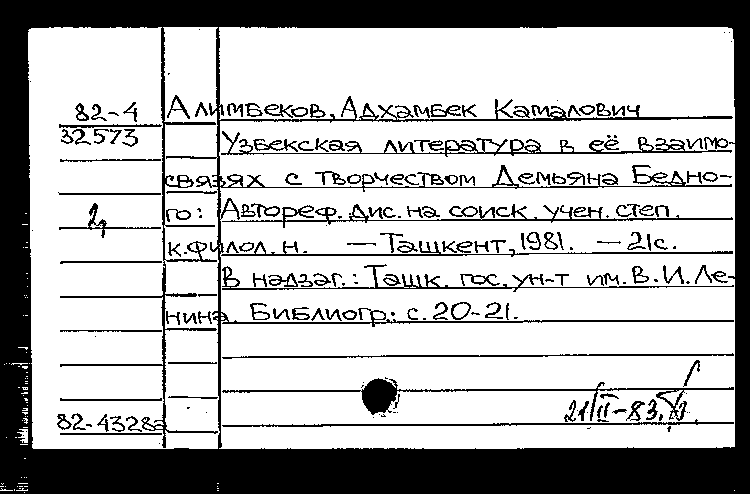 82-4 Алимбеков, Адхамбек Камалович
32573 Узбекская литература в её взаимо-
связях с творчеством Демьяна Бедно-
го: Автореф. дис. на соиск. учен. степ.
к.филол.н. — Ташкент, 1981. — 21с.
В надзаг.: Ташк. гос. ун-т им. В.И. Ле-
нина. Библиогр.: с. 20-21.
21/II-83.
82-4328а